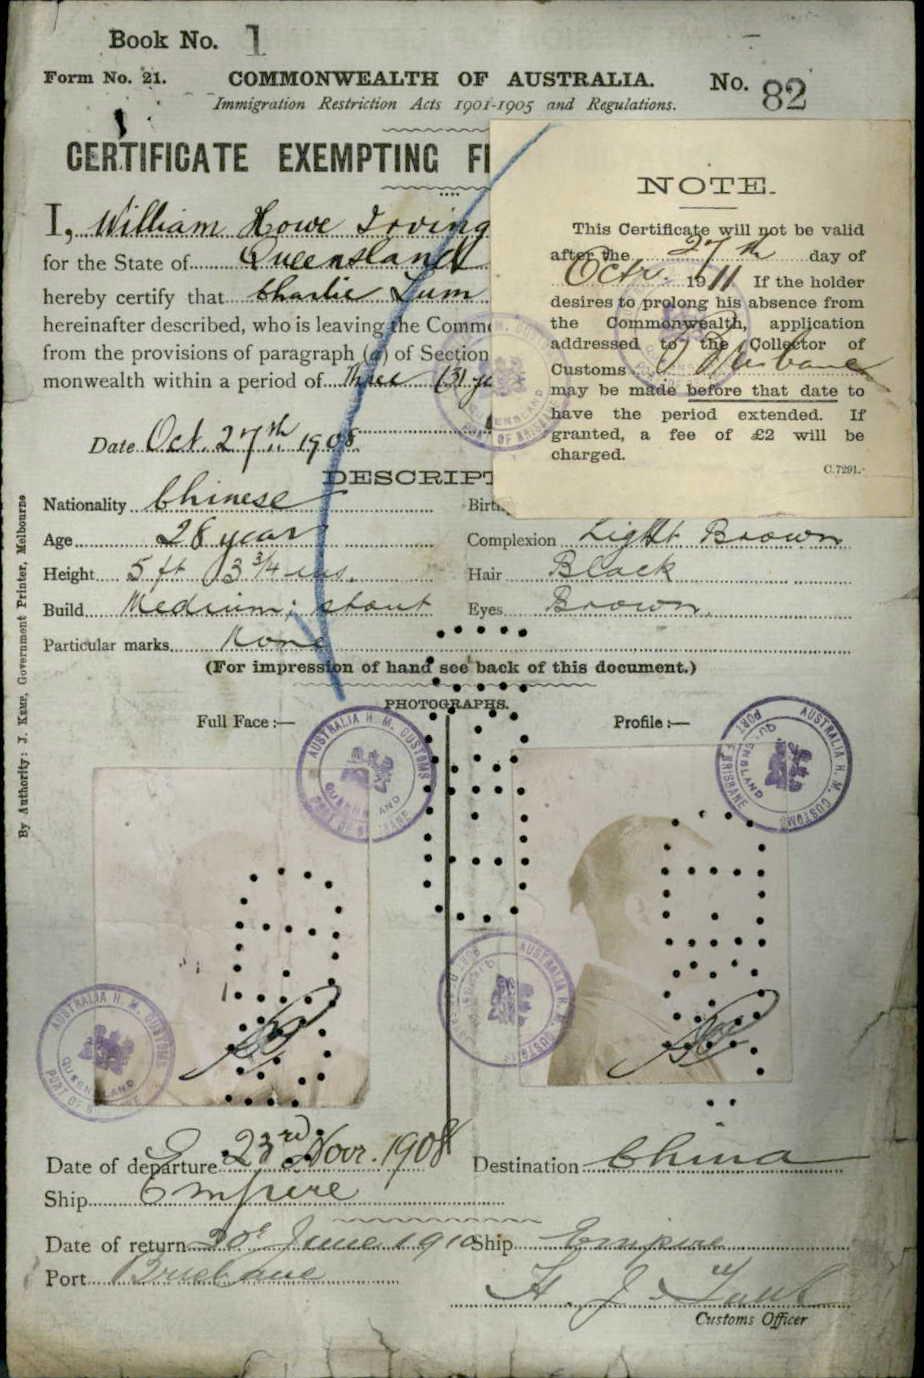 Book No. 1
Form No. 21. COMMONWEALTH OF AUSTRALIA. No. 82
Immigration Restriction Acts 1901-1905 and Regulations.
CERTIFICATE EXEMPTING
I, William Howe Irving
for the State of Queensland
hereby certify that Charlie Lum
hereinafter described, who is leaving the Comm
from the provisions of paragraph (a) of Section
monwealth within a period of Three (3) ye
Date Oct. 27th 1908.
NOTE.
This Certificate will not be valid
after the 27th day of
Octr. 1911 If the holder
desires to prolong his absence from
the Commonwealth, application
addressed to the Collector of
Customs Brisbane
may be made before that date to
have the period extended. If
granted, a fee of £2 will be
charged.
C.7291.
DESCRIPT
Nationality Chinese Birth
Age 28 years Complexion Light Brown
Height 5 ft 3 3/4 ins. Hair Black
Build Medium; stout Eyes Brown
Particular marks None
(For impression of hand see back of this document.)
PHOTOGRAPHS.
Full Face:— Profile:—
AUSTRALIA H. M. CUSTOMS
QUEENSLAND
PORT OF BRISBANE
AUSTRALIA H. M. CUSTOMS
QUEENSLAND
PORT OF BRISBANE
AUSTRALIA H. M. CUSTOMS
AUSTRALIA H. M. CUSTOMS
QUEENSLAND
PORT OF
Date of departure 23rd Novr. 1908 Destination China
Ship Empire
Date of return 20th June 1910 Ship Empire
Port Brisbane
Customs Officer
By Authority: J. KEMP, Government Printer, Melbourne